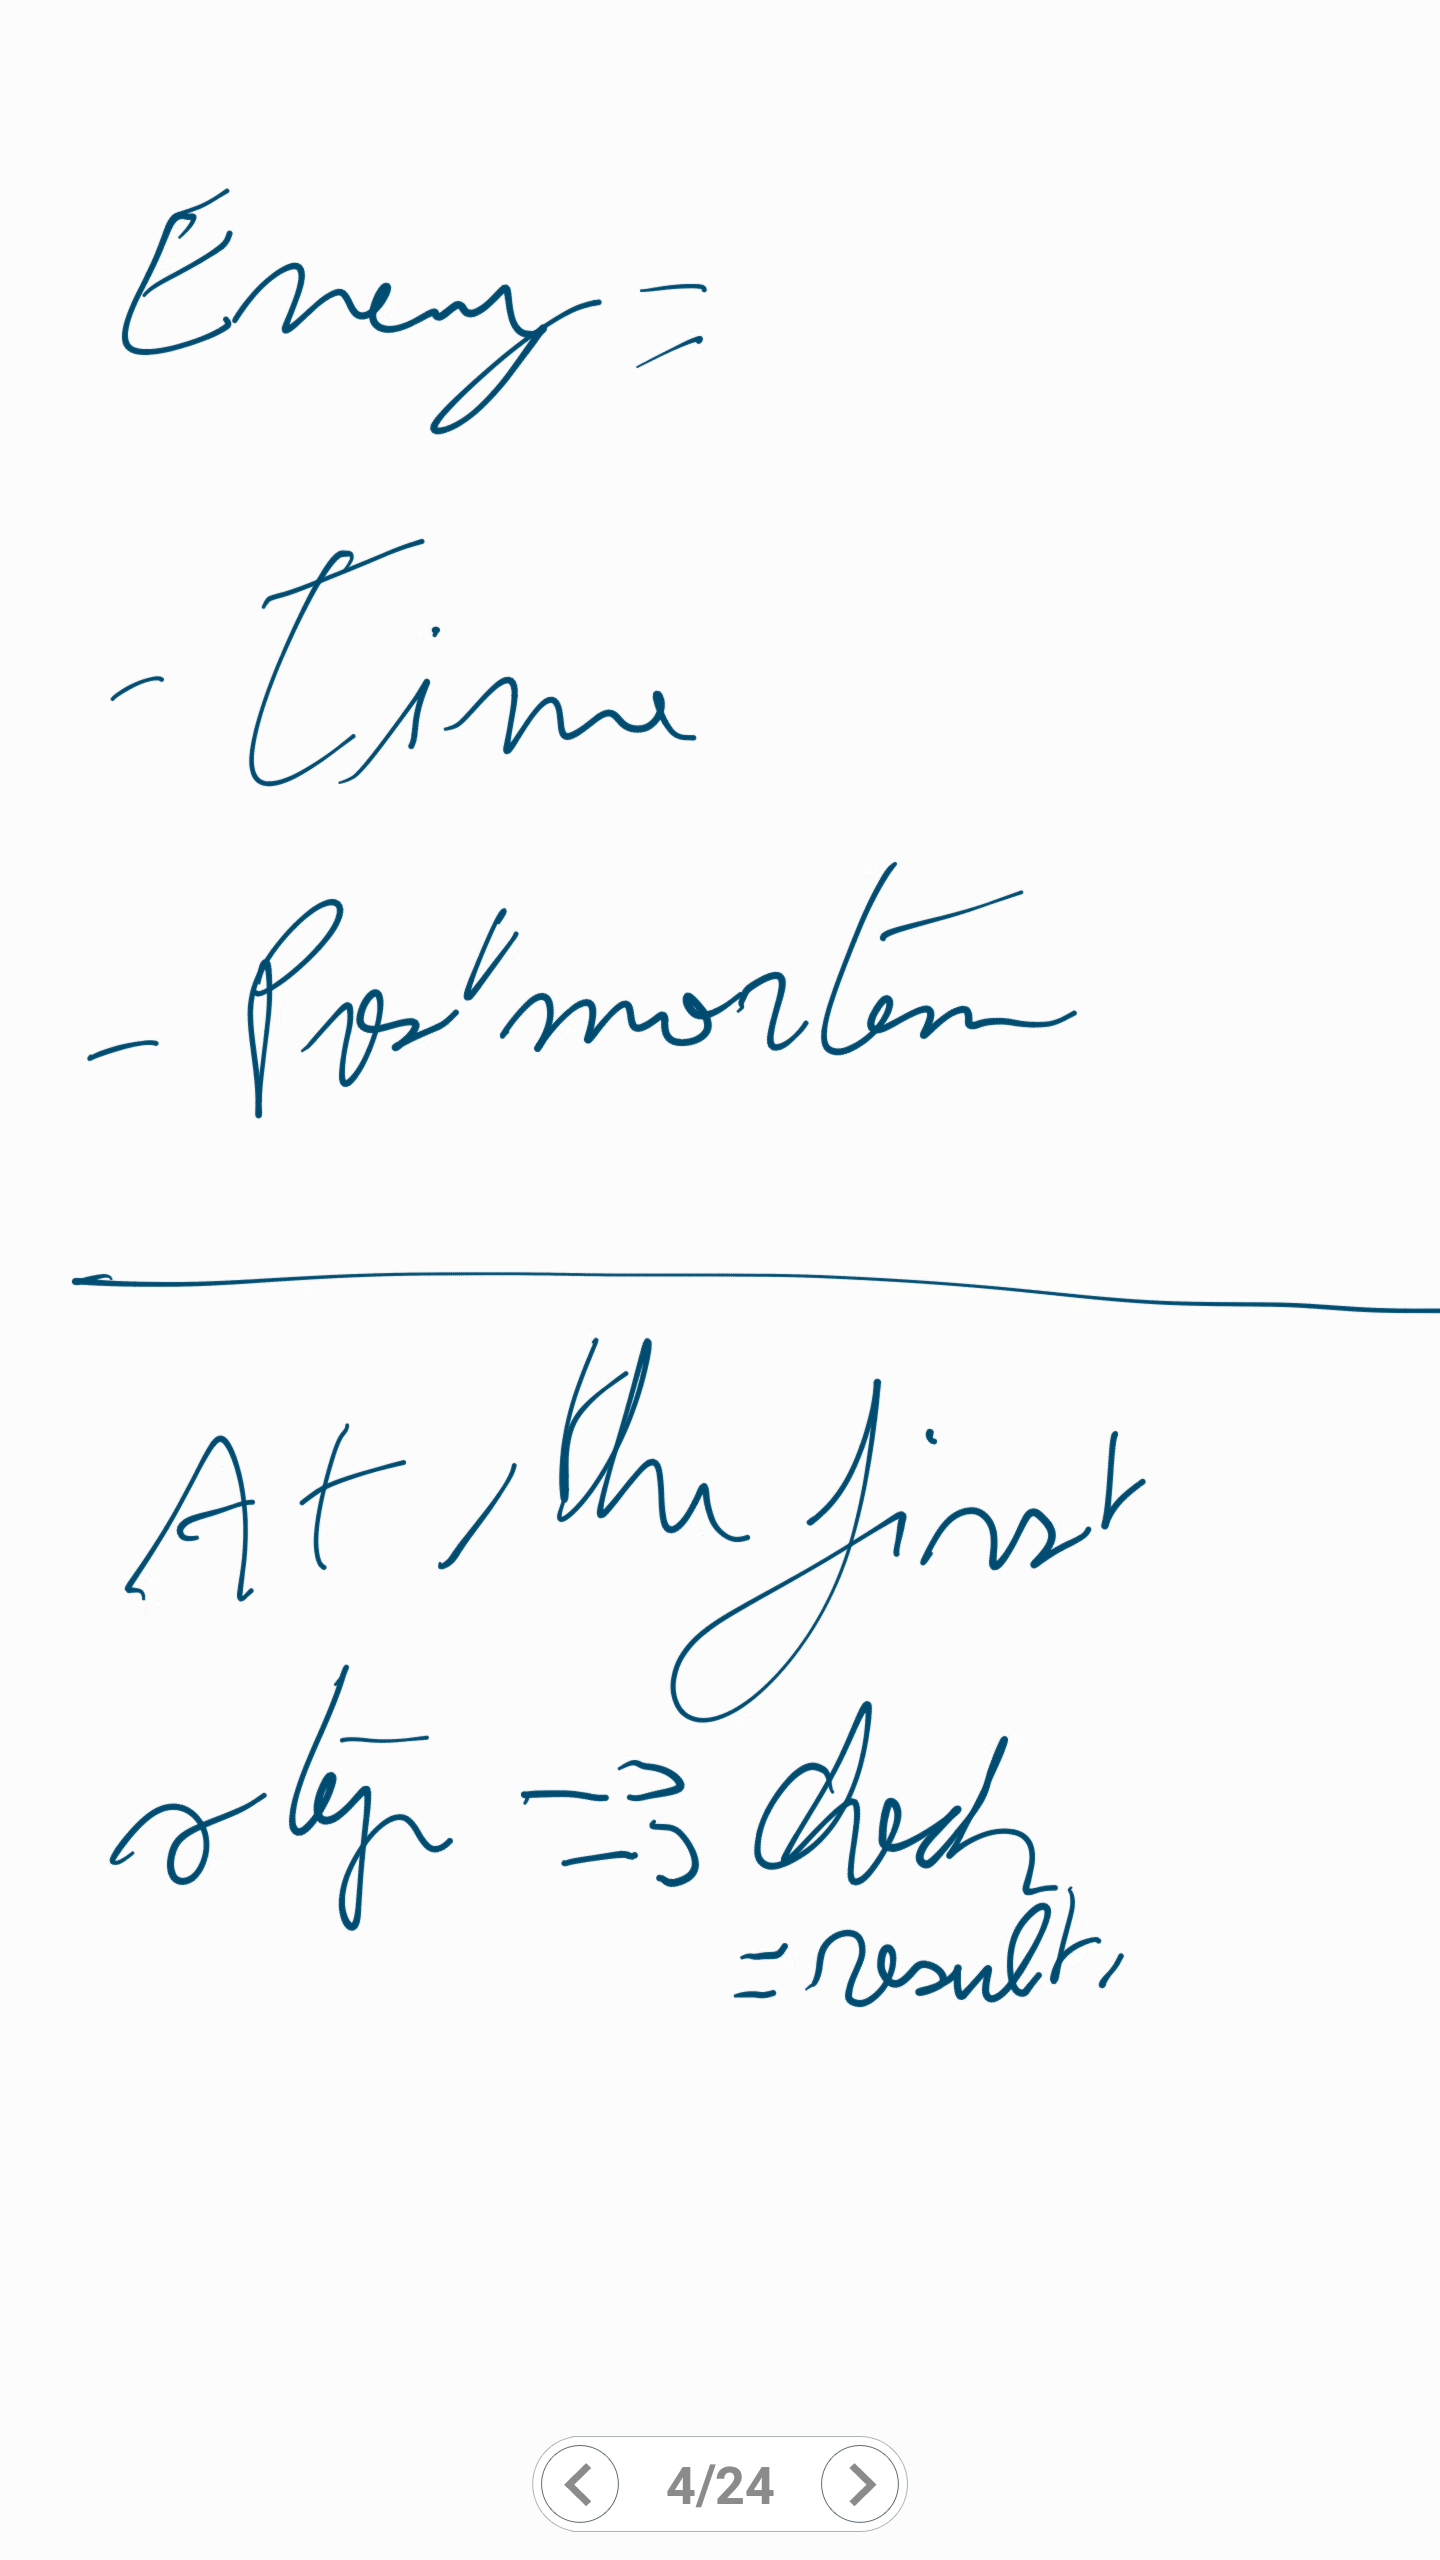 Enemy =
- Time
- Postmortem
At, the first
step =>
= result.
4/24